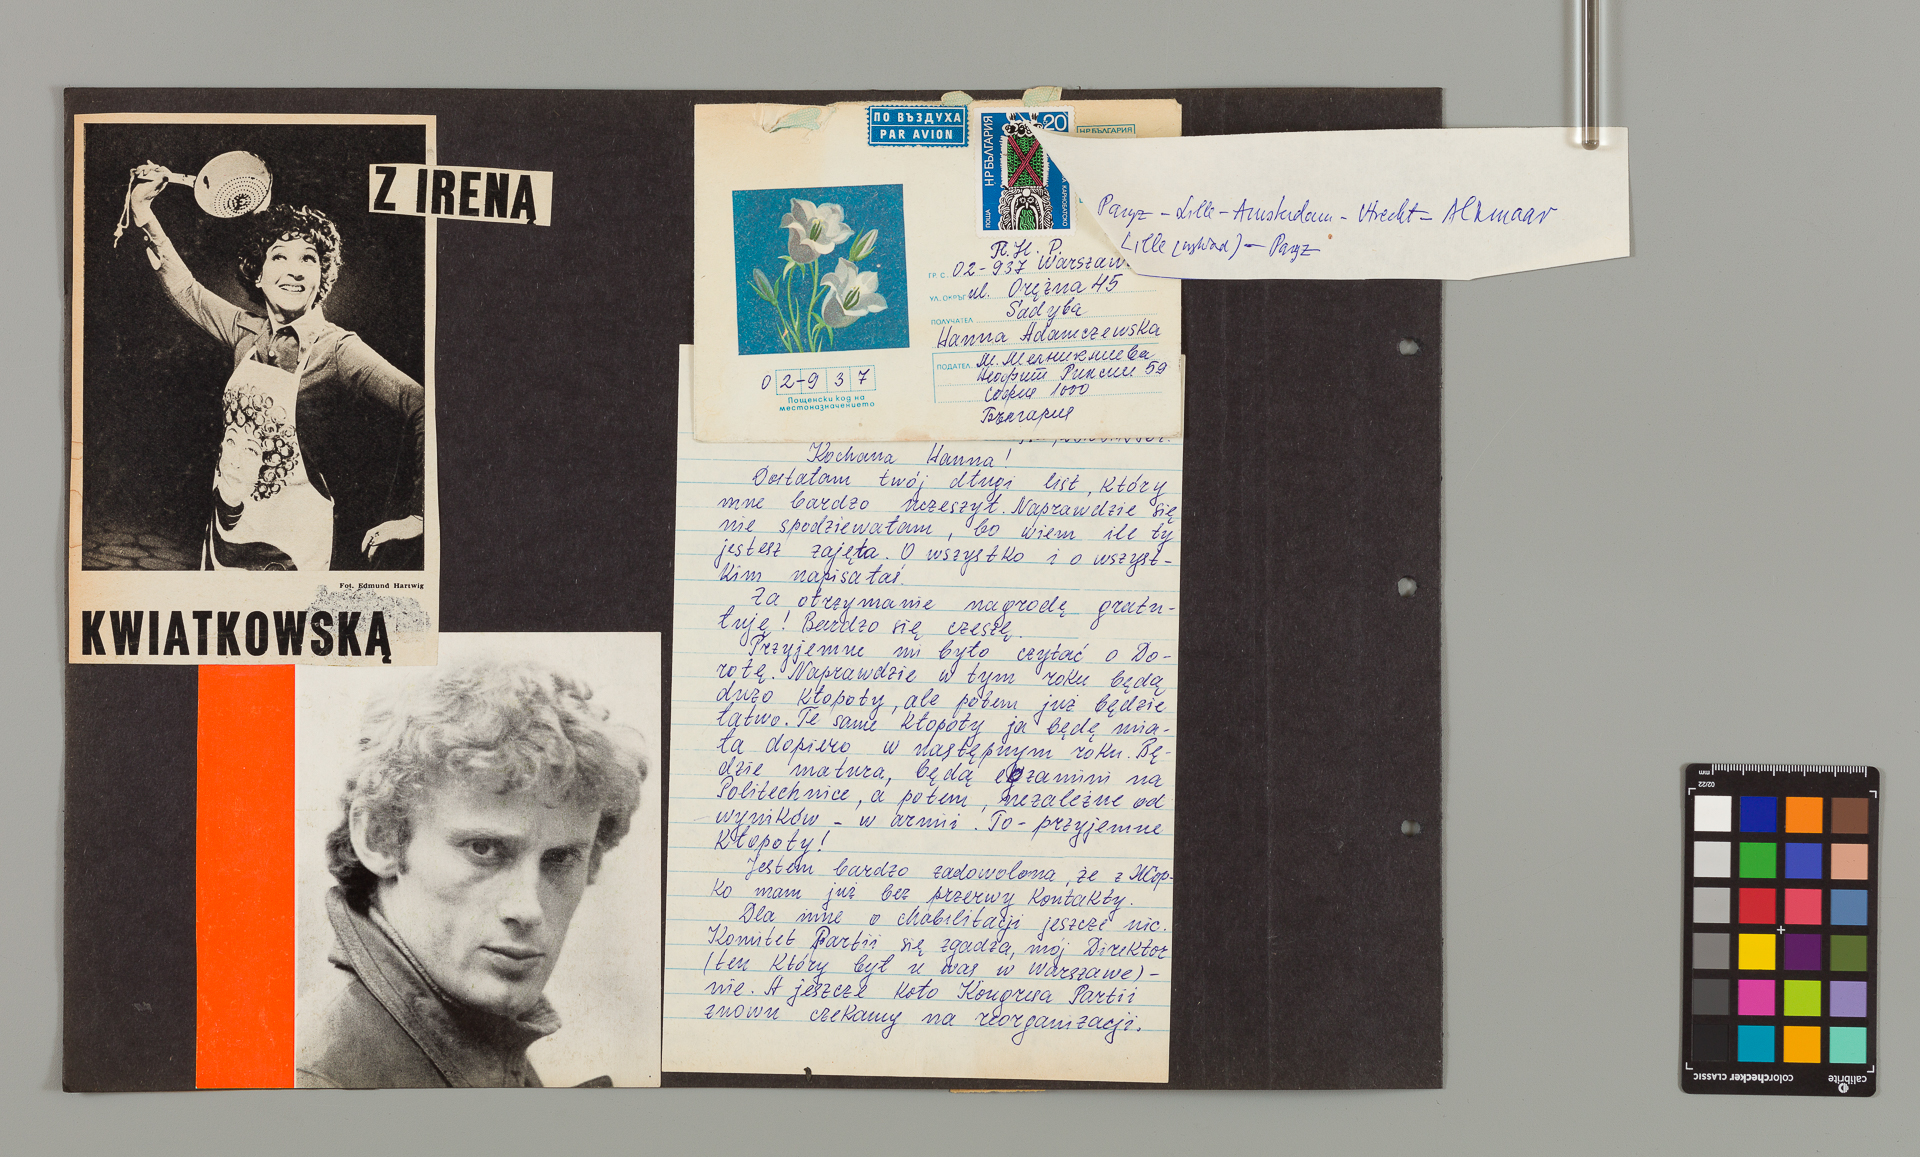 Z IRENĄ
Fot. Edmund Hartwig
KWIATKOWSKĄ
ПО ВЪЗДУХА
PAR AVION
НР БЪЛГАРИЯ
20
ПОЩА
НР БЪЛГАРИЯ
П. Н. Р.
ГР. С. 02-937 Warszaw
УЛ. ОКРЪГ ul. Orężna 45
Sadyba
ПОЛУЧАТЕЛ
Hanna Adamczewska
ПОДАТЕЛ
Неофит Рилски 59
София 1000
България
02-937
Пощенски код на
местоназначението
Paryz - Lille - Amsterdam - Utrecht - Alkmaar
Lille - Paryz
Kochana Hanna!
Dostałam twój długi list, który
mne bardzo uczeszył. Naprawdzie się
nie spodziewałam, bo wiem ile ty
jestesz zajęta. O wszystko i o wszyst-
kim napisałaś.
Za otrzymanie nagrodę gratu-
luję! Bardzo się czeszę.
Przyjemne mi było czytać o Do-
rotę. Naprawdzie w tym roku będą
dużo kłopoty, ale potem już będzie
łatwo. Te same kłopoty ja będę mia-
ła dopiero w następnym roku. Bę-
dzie matura, będą egzamini na
Politechnice, a potem, niezależne od
wyników - w armii. To - przyjemne
kłopoty!
Jestem bardzo zadowolona, że z
ko mam już bez przerwy kontakty.
Dla mne o chabilitacji jeszcze nic.
Komitet Partii się zgadza, moj Direktor
(ten który był u was w Warszawe) -
nie. A jeszcze koło Kongresa Partii
znowu czekamy na reorganizacji.
mm
02/22
colorchecker CLASSIC
calibrite